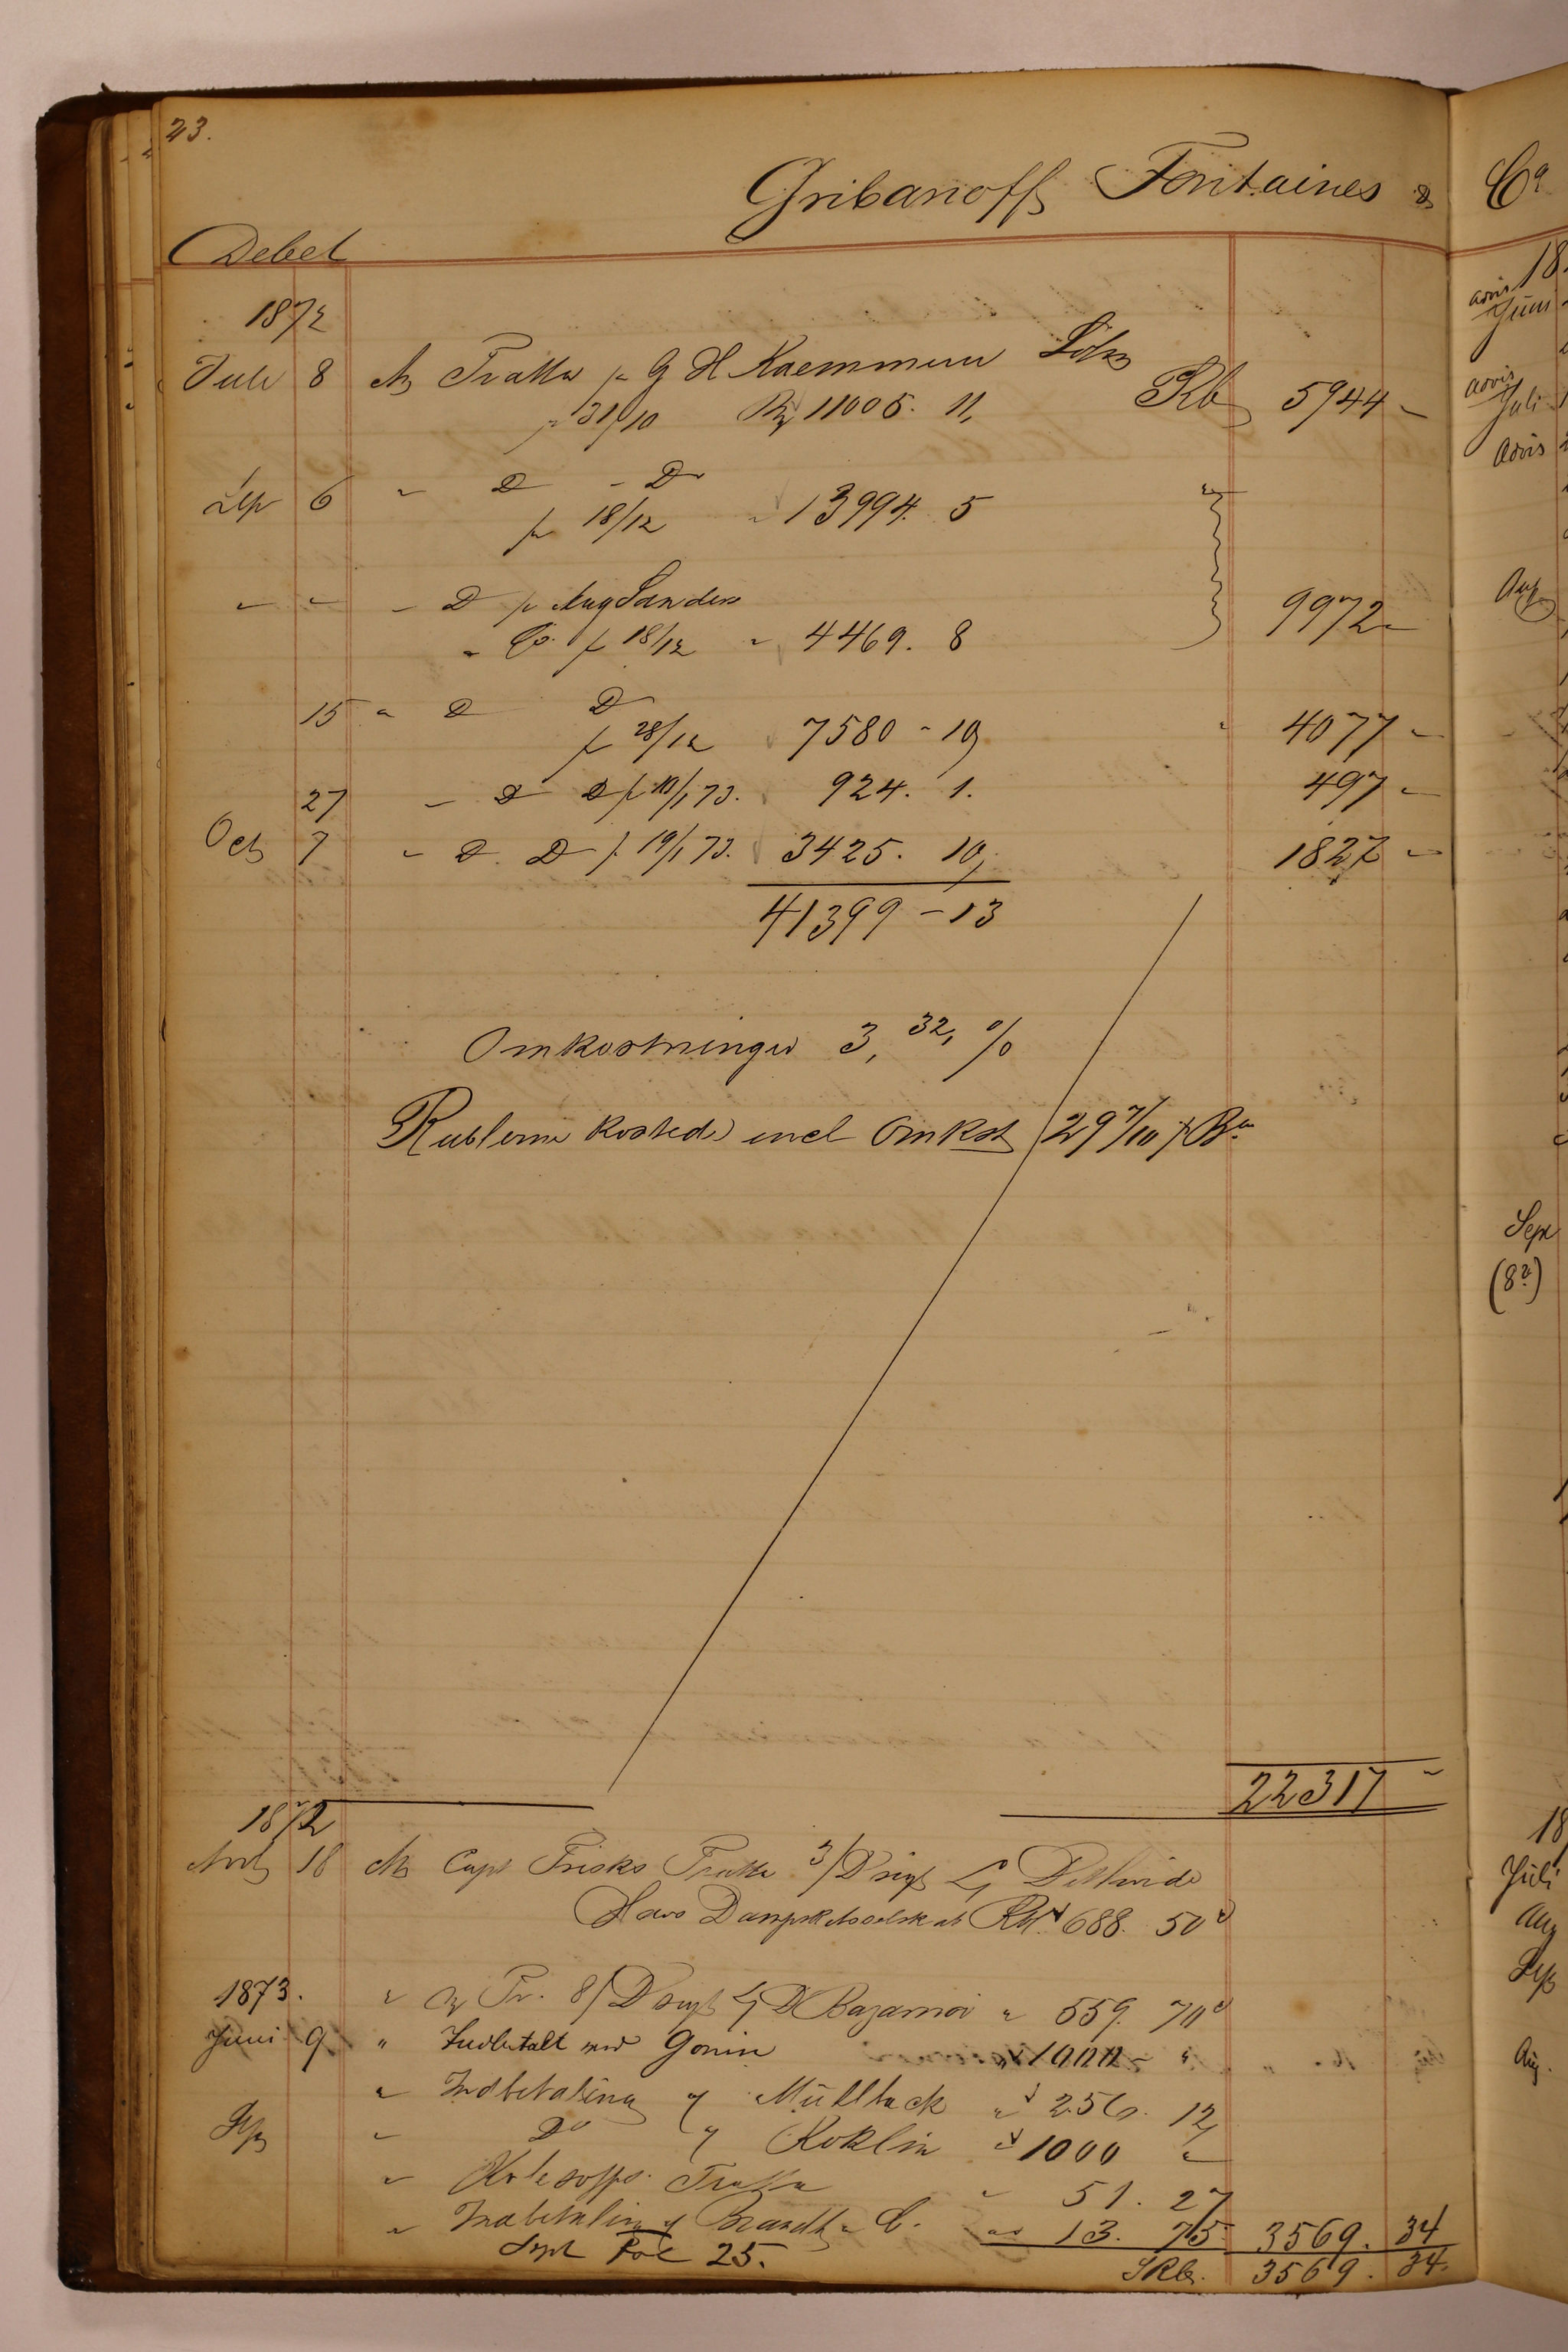 23.
Gribanoff Fontaines & Co
Debet
1872
Juli 8 Tratta pr G H Kaemmerer Söhne
pr 31/10 11005. 11, Rb 5944 -
Sep 6 " Do - Do
pr 18/12 " 13994. 5
" " - Do pr Aug Sanders
& Co. pr 18/12 " 4469. 8 9972 -
15 " Do Do
pr 28/12 7580 - 10, " 4077 -
27 - Do Do pr 10/1 73. 924. 1. 497 -
Oct 7 " Do. Do pr 19/1 73. 3425. 10, 1827 -
41399 - 13
Omkostninger 3, 32, %
Rublerne kostede incl Omkst 29 7/10 pr
22317 -
1872
Novb 18 Capt Frisks Tratta 3/D sigt
Havs Dampskibsselskab 688. 50
1873. " Tr. 8/D sigt Bazarnoi " 559. 70
Juni 9 " Indbetalt ved Gonin " 1000 - "
" Indbetaling af Müllback " 256. 12,
Sep " Do af Koklin " 1000 "
" Tratta " 51. 27
" Indbetaling af Brandt & C. 13. 75 3569. 34
Sept Fol 25. SRb. 3569. 34.
avis 18
Juni
avis
Juli
avis
Aug
Sept
(8)
18
Juli
Aug
Sep
Aug.